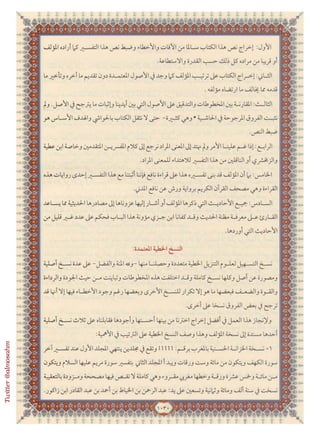 الأول: إخراج نص هذا الكتاب سالمًا من الآفات والأخطاء وضبط نص هذا التفسير كما أراده المؤلف
أو قريبا من مراده كل ذلك حسب القدرة والاستطاعة.
الثاني: إخراج الكتاب على ترتيب المؤلف كما وجد في الأصول المعتمدة دون تقديم ما أخره وتأخير ما
قدمه مما يخالف ما ارتضاه مؤلفه.
الثالث: المقارنة بين المخطوطات والتدقيق على الأصول التي بين أيدينا وإثبات ما يترجح في الأصل. ولم
نثبت الفروق المرجوحة في الحاشية - وهي كثيرة - حتى لا نثقل الكتاب بالحواشي والهدف الأساس هو
ضبط النص.
الرابع: إذا غم علينا الأمر ولم نهتد إلى المعنى المراد نرجع إلى كلام المفسرين المتقدمين وخاصة ابن عطية
والزمخشري أو الناقلين من هذا التفسير للاهتداء للمعنى المراد.
الخامس: بما أن المؤلف قد بنى تفسيره هذا على قراءة نافع فإننا أثبتنا مع هذا التفسير إحدى روايات هذه
القراءة وهي مصحف القرآن الكريم برواية ورش عن نافع المدني.
السادس: جميع الأحاديث التي ذكرها المؤلف أو أشار إليها عزوناها إلى مصادرها الحديثية مما يساعد
القارئ على معرفة مظنة الحديث وقد كفانا ابن جزي مؤنة هذا الباب فحكم على عدد غير قليل من
الأحاديث التي أوردها.
النسخ الخطية المعتمدة:
نسخ التسهيل لعلوم التنزيل الخطية متعددة وحصلنا منها - ولله المنة والفضل - على عدة نسخ أصلية
ومصورة عن أصل وكلها نسخ كاملة وقد اختلفت هذه المخطوطات وتباينت من حيث الجودة والرداءة
والقوة والضعف فبعضها ما هو إلا تكرار للنسخ الأخرى وبعضها رغم وجود الأخطاء فيها إلا أنها قد
ترجح في بعض الفروق نسخا على أخرى.
ولإنجاز هذا العمل في أفضل إخراج اخترنا من بينها أحسنها وأجودها فقابلناه على ثلاث نسخ أصلية
أحدها مسندة إلى نسخة المؤلف وهذا وصف النسخ الخطية على الترتيب في الأهمية.
١- نسخة الخزانة الحسنية بالمغرب برقم: وتقع في مجلدين ينتهي المجلد الأول عند تفسير آخر
سورة الكهف ويتكون من مائة وست ورقات ويبدأ المجلد الثاني بتفسير سورة مريم عليها السلام ويتكون
من مائة وخمس عشرة ورقة وخطها مغربي مقروء وهي كاملة لا نقص فيها مصححة ومزودة بالتعقيبة
نسخت في سنة ألف ومائة وثمانية وتسعين على يد: عبد الرحمن بن الخياط بن أحمد بن عبد القادر ابن زاكور.
Twitter: @abdrawafim